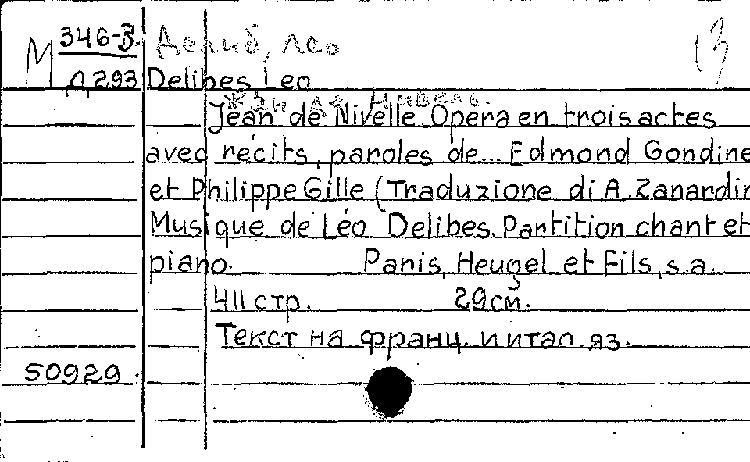 346-В. Делиб, Лео
М 13
Д293 Delibes Leo
Жан де Нивель.
Jean de Nivelle Opera en trois actes
avec récits, paroles de... Edmond Gondine
et Philippe Gille (Traduzione di A. Zanardin
Musique de Léo Delibes. Partition chant et
piano. Panis, Heugel et Fils, s.a.
411 стр. 29 см.
Текст на франц. и итал. яз.
50929